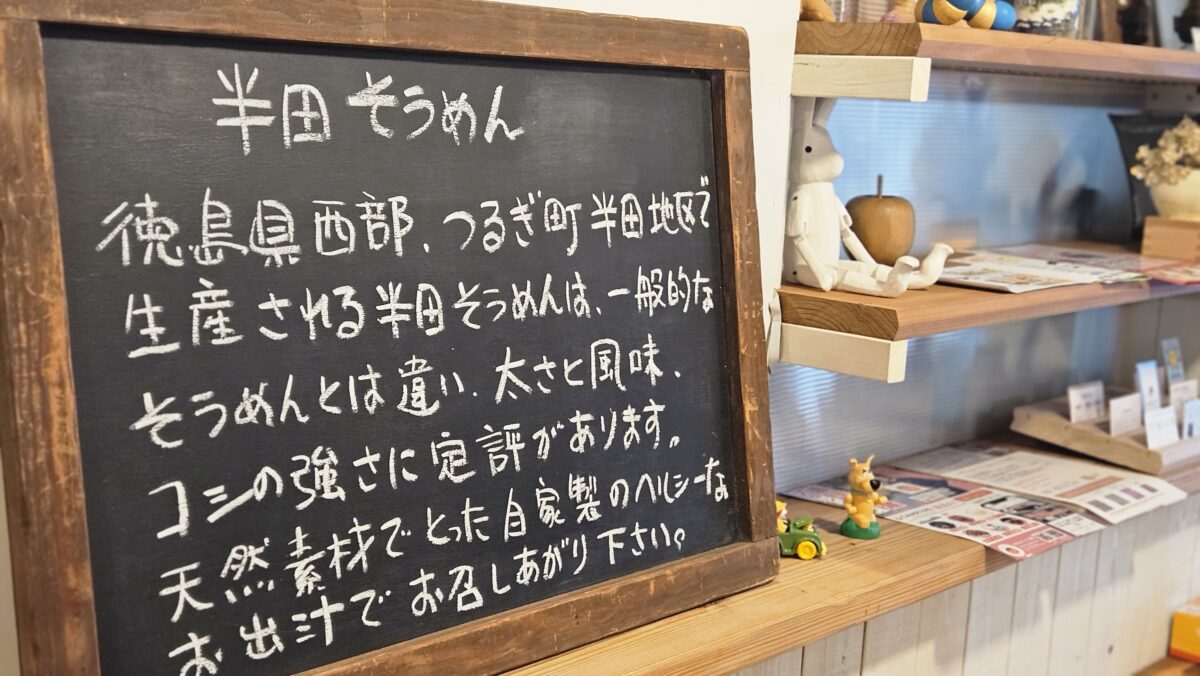 半田そうめん
徳島県西部、つるぎ町半田地区で
生産される半田そうめんは、一般的な
そうめんとは違い、太さと風味、
コシの強さに定評があります。
天然素材でとった自家製のヘルシーな
お出汁でお召しあがり下さい。